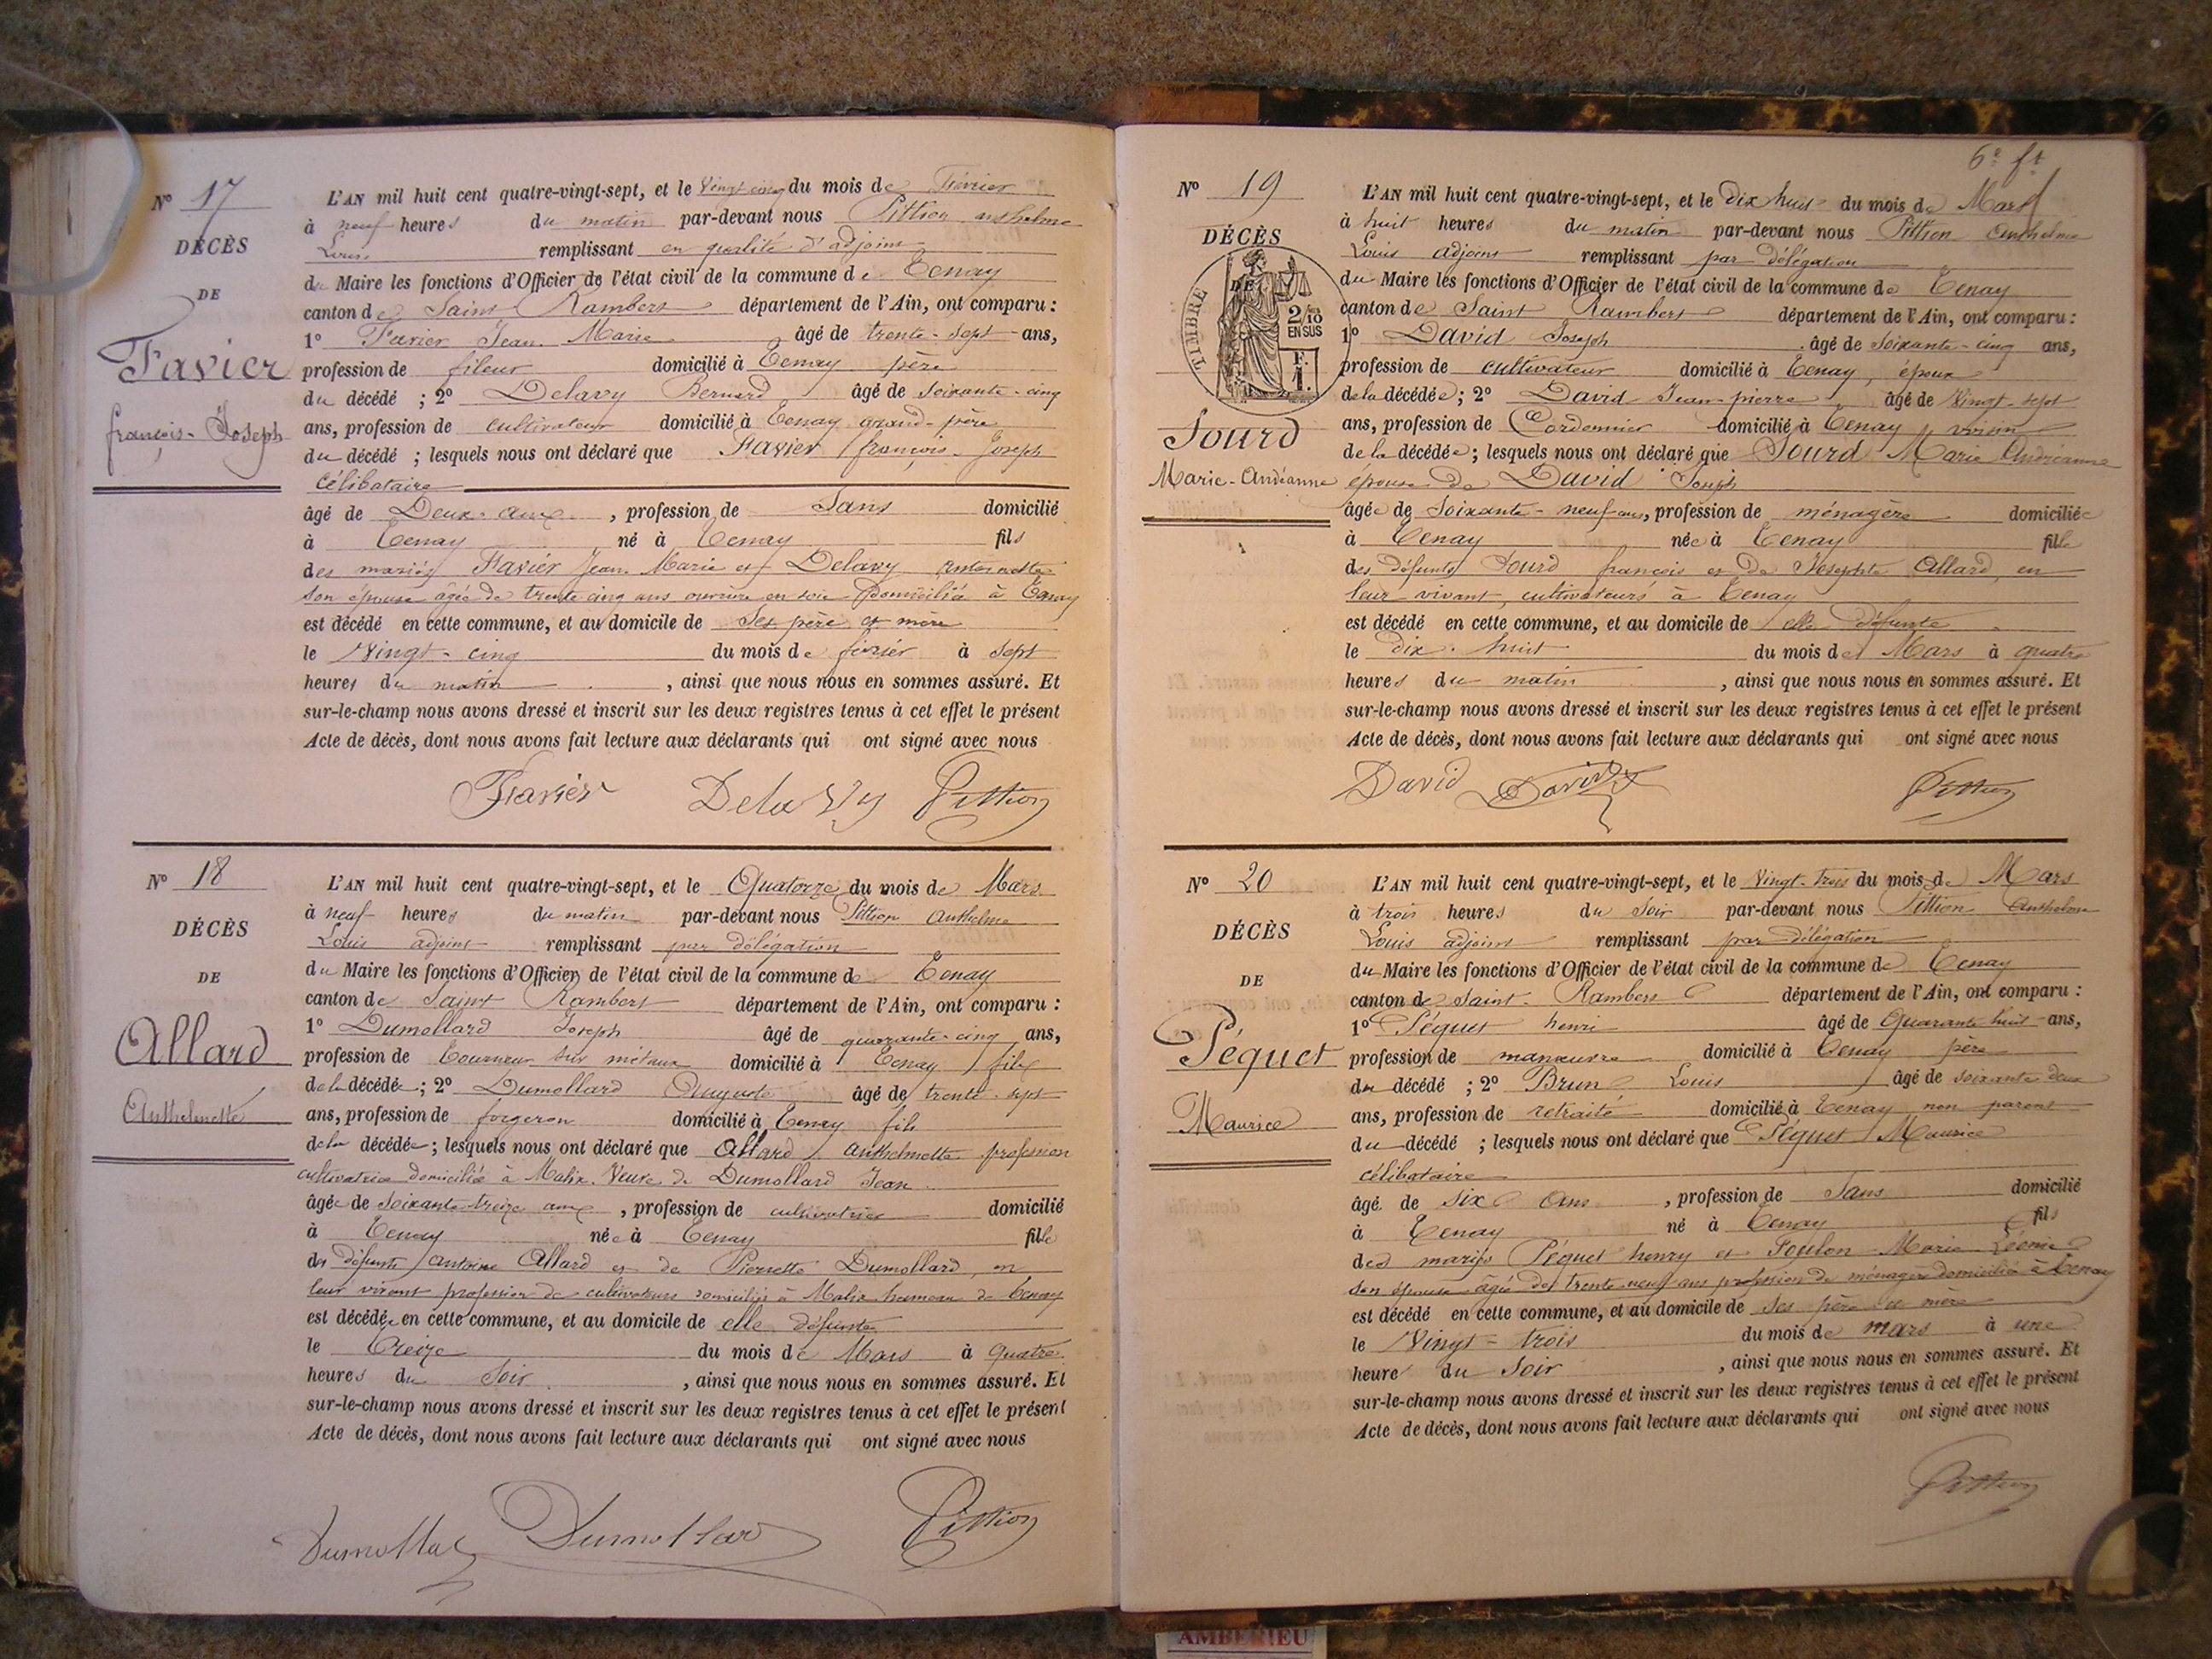 N° 17
DÉCÈS
DE
Favier
françois-Joseph
L'AN mil huit cent quatre-vingt-sept, et le Vingt cinq du mois de Février
à neuf heures du matin par-devant nous Pittion anthelme
Louis remplissant en qualité d'adjoint
du Maire les fonctions d'Officier de l'état civil de la commune de Tenay
canton de Saint Rambert département de l'Ain, ont comparu :
1° Favier Jean Marie âgé de trente-sept ans,
profession de fileur domicilié à Tenay père
du décédé ; 2° Delavy Bernard âgé de soixante-cinq
ans, profession de cultivateur domicilié à Tenay grand-père
du décédé ; lesquels nous ont déclaré que Favier françois-Joseph
célibataire
âgé de Deux ans , profession de Sans domicilié
à Tenay né à Tenay fils
des mariés Favier Jean Marie et Delavy Antoinette
son épouse agée de trente cinq ans ouvrière en soie Domiciliée à Tenay
est décédé en cette commune, et au domicile de Ses père et mère
le Vingt-cinq du mois de février à sept
heures du matin , ainsi que nous nous en sommes assuré. Et
sur-le-champ nous avons dressé et inscrit sur les deux registres tenus à cet effet le présent
Acte de décès, dont nous avons fait lecture aux déclarants qui ont signé avec nous
Favier Delavy Pittion
N° 18
DÉCÈS
DE
Allard
Anthelmette
L'AN mil huit cent quatre-vingt-sept, et le Quatorze du mois de Mars
à neuf heures du matin par-devant nous Pittion Anthelme
Louis adjoint remplissant par délégation
du Maire les fonctions d'Officier de l'état civil de la commune de Tenay
canton de Saint Rambert département de l'Ain, ont comparu :
1° Dumollard Joseph âgé de quarante-cinq ans,
profession de Tourneur sur métaux domicilié à Tenay fils
de la décédée ; 2° Dumollard Auguste âgé de trente-sept
ans, profession de forgeron domicilié à Tenay fils
de la décédée ; lesquels nous ont déclaré que Allard Anthelmette profession
cultivatrice domiciliée à Malix Veuve de Dumollard Jean
âgée de soixante-treize ans , profession de cultivatrice domicilié
à Tenay née à Tenay fille
des défunts Antoine Allard et de Pierrette Dumollard, en
leur vivant profession de cultivateurs domiciliés à Malix hameau de Tenay
est décédée en cette commune, et au domicile de elle défunte
le Treize du mois de Mars à quatre
heures du Soir , ainsi que nous nous en sommes assuré. Et
sur-le-champ nous avons dressé et inscrit sur les deux registres tenus à cet effet le présent
Acte de décès, dont nous avons fait lecture aux déclarants qui ont signé avec nous
Dumollar Pittion
6e ft
N° 19
DÉCÈS
DE
TIMBRE
2/10
EN SUS
F.
1.
Sourd
Marie-Andéanne
L'AN mil huit cent quatre-vingt-sept, et le Dix huit du mois de Mars
à huit heures du matin par-devant nous Pittion Anthelme
Louis adjoint remplissant par délégation
du Maire les fonctions d'Officier de l'état civil de la commune de Tenay
canton de Saint Rambert département de l'Ain, ont comparu :
1° David Joseph âgé de Soixante-cinq ans,
profession de cultivateur domicilié à Tenay, époux
de la décédée ; 2° David Jean-pierre âgé de Vingt-sept
ans, profession de Cordonnier domicilié à Tenay voisin
de la décédée ; lesquels nous ont déclaré que Sourd Marie Andréanne
épouse de David Joseph
âgée de Soixante-neuf ans, profession de ménagère domiciliée
à Tenay née à Tenay fille
des défunts Sourd françois et de Josephte Allard, en
leur vivant, cultivateurs à Tenay
est décédé en cette commune, et au domicile de elle défunte
le dix-huit du mois de Mars à quatre
heures du matin , ainsi que nous nous en sommes assuré. Et
sur-le-champ nous avons dressé et inscrit sur les deux registres tenus à cet effet le présent
Acte de décès, dont nous avons fait lecture aux déclarants qui ont signé avec nous
David David Pittion
N° 20
DÉCÈS
DE
Péquet
Maurice
L'AN mil huit cent quatre-vingt-sept, et le Vingt-trois du mois de Mars
à trois heures du Soir par-devant nous Pittion Anthelme
Louis adjoint remplissant par délégation
du Maire les fonctions d'Officier de l'état civil de la commune de Tenay
canton de Saint-Rambert département de l'Ain, ont comparu :
1° Péquet henri âgé de Quarante huit ans,
profession de manœuvre domicilié à Tenay père
du décédé ; 2° Brun Louis âgé de soixante deux
ans, profession de retraité domicilié à Tenay non parent
du décédé ; lesquels nous ont déclaré que Péquet Maurice
célibataire
âgé de six ans , profession de Sans domicilié
à Tenay né à Tenay fils
des mariés Péquet henry et Foulon Marie Léonie
son épouse âgée de trente neuf ans profession de ménagère domiciliée à Tenay
est décédé en cette commune, et au domicile de ses père et mère
le Vingt-trois du mois de mars à une
heure du Soir , ainsi que nous nous en sommes assuré. Et
sur-le-champ nous avons dressé et inscrit sur les deux registres tenus à cet effet le présent
Acte de décès, dont nous avons fait lecture aux déclarants qui ont signé avec nous
Pittion
AMBERIEU